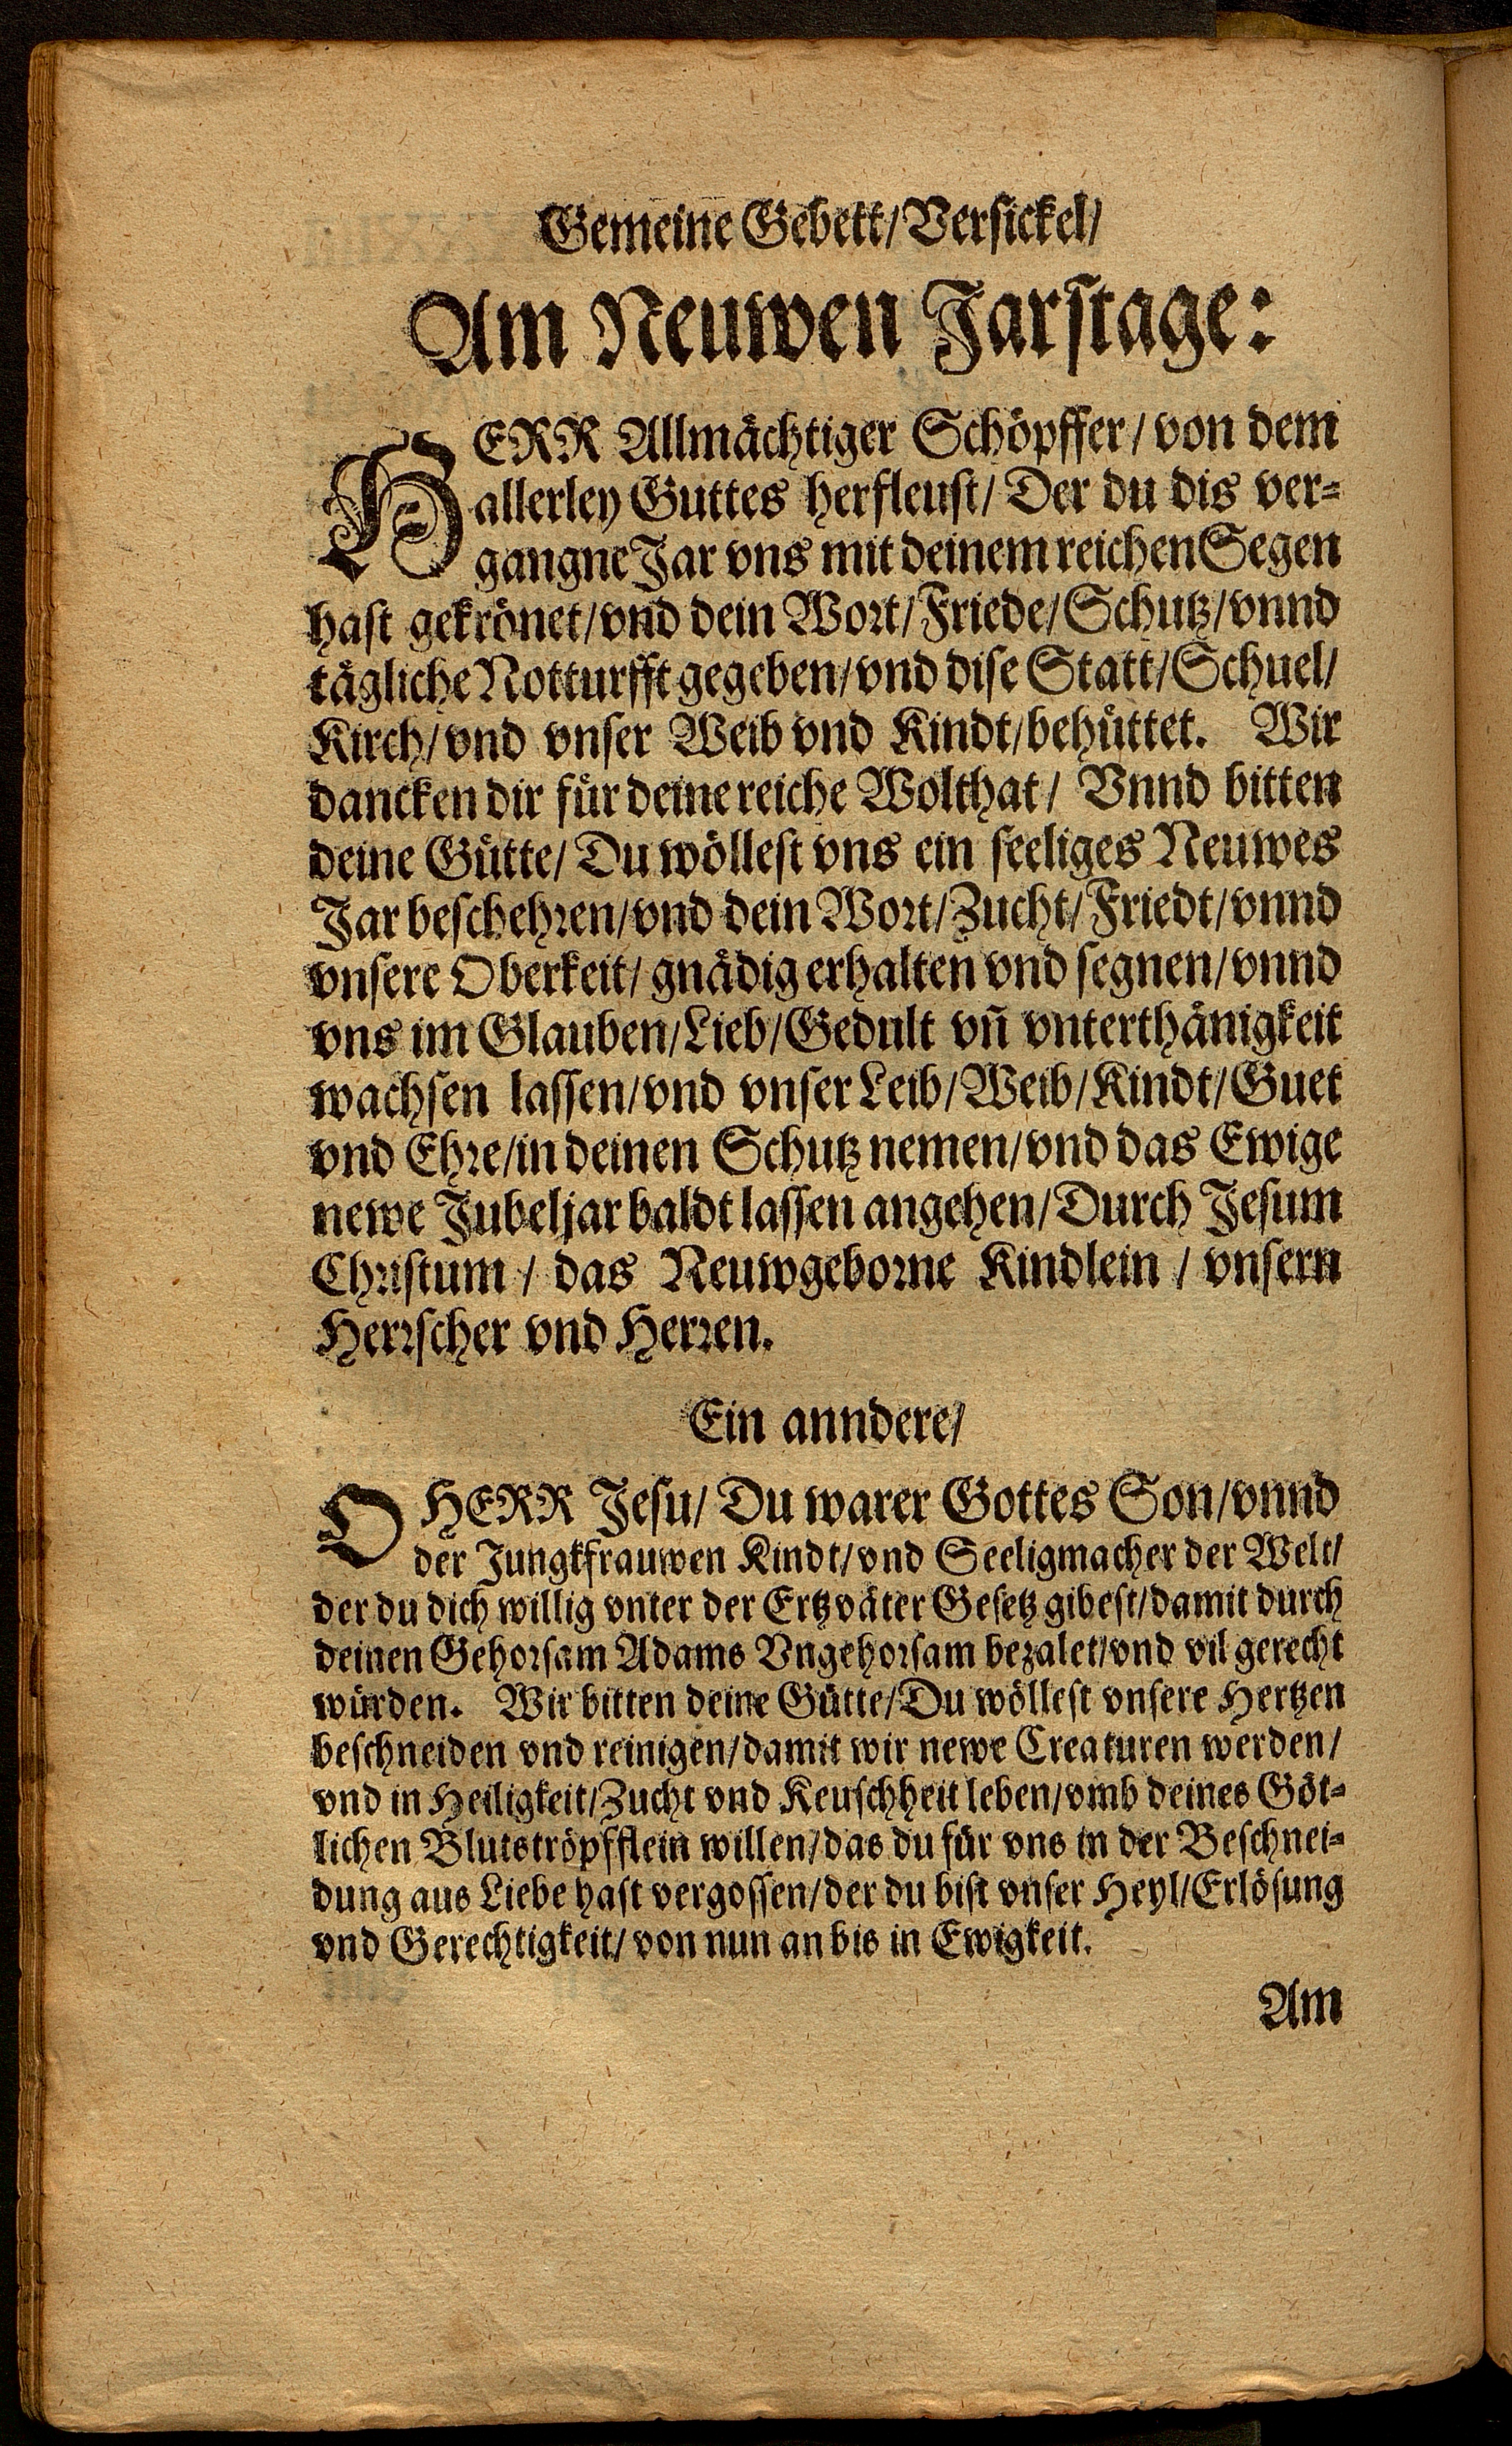 Gemeine Gebett/Versickel/
Am Neuwen Jarstage:
HERR Allmächtiger Schöpffer/von dem
allerley Guttes herfleust/Der du dis ver-
gangne Jar vns mit deinem reichen Segen
hast gekrönet/vnd dein Wort/Friede/Schutz/vnnd
tägliche Notturfft gegeben/vnd dise Statt/Schuel/
Kirch/vnd vnser Weib vnd Kindt/behüttet. Wir
dancken dir für deine reiche Wolthat/ Vnnd bitten
deine Gütte/Du wöllest vns ein seeliges Neuwes
Jar beschehren/vnd dein Wort/Zucht/Friedt/vnnd
vnsere Oberkeit/gnädig erhalten vnd segnen/vnnd
vns im Glauben/Lieb/Gedult vñ vnterthänigkeit
wachsen lassen/vnd vnser Leib/Weib/Kindt/Guet
vnd Ehre/in deinen Schutz nemen/vnd das Ewige
newe Jubeljar baldt lassen angehen/Durch Jesum
Christum / das Neuwgeborne Kindlein / vnsern
Herrscher vnd Herren.
Ein anndere/
O HERR Jesu/Du warer Gottes Son/vnnd
der Jungkfrauwen Kindt/vnd Seeligmacher der Welt/
der du dich willig vnter der Ertzväter Gesetz gibest/damit durch
deinen Gehorsam Adams Vngehorsam bezalet/vnd vil gerecht
würden. Wir bitten deine Gütte/Du wöllest vnsere Hertzen
beschneiden vnd reinigen/damit wir newe Creaturen werden/
vnd in Heiligkeit/Zucht vnd Keuschheit leben/vmb deines Göt-
lichen Blutströpfflein willen/das du für vns in der Beschnei-
dung aus Liebe hast vergossen/der du bist vnser Heyl/Erlösung
vnd Gerechtigkeit/von nun an bis in Ewigkeit.
Am